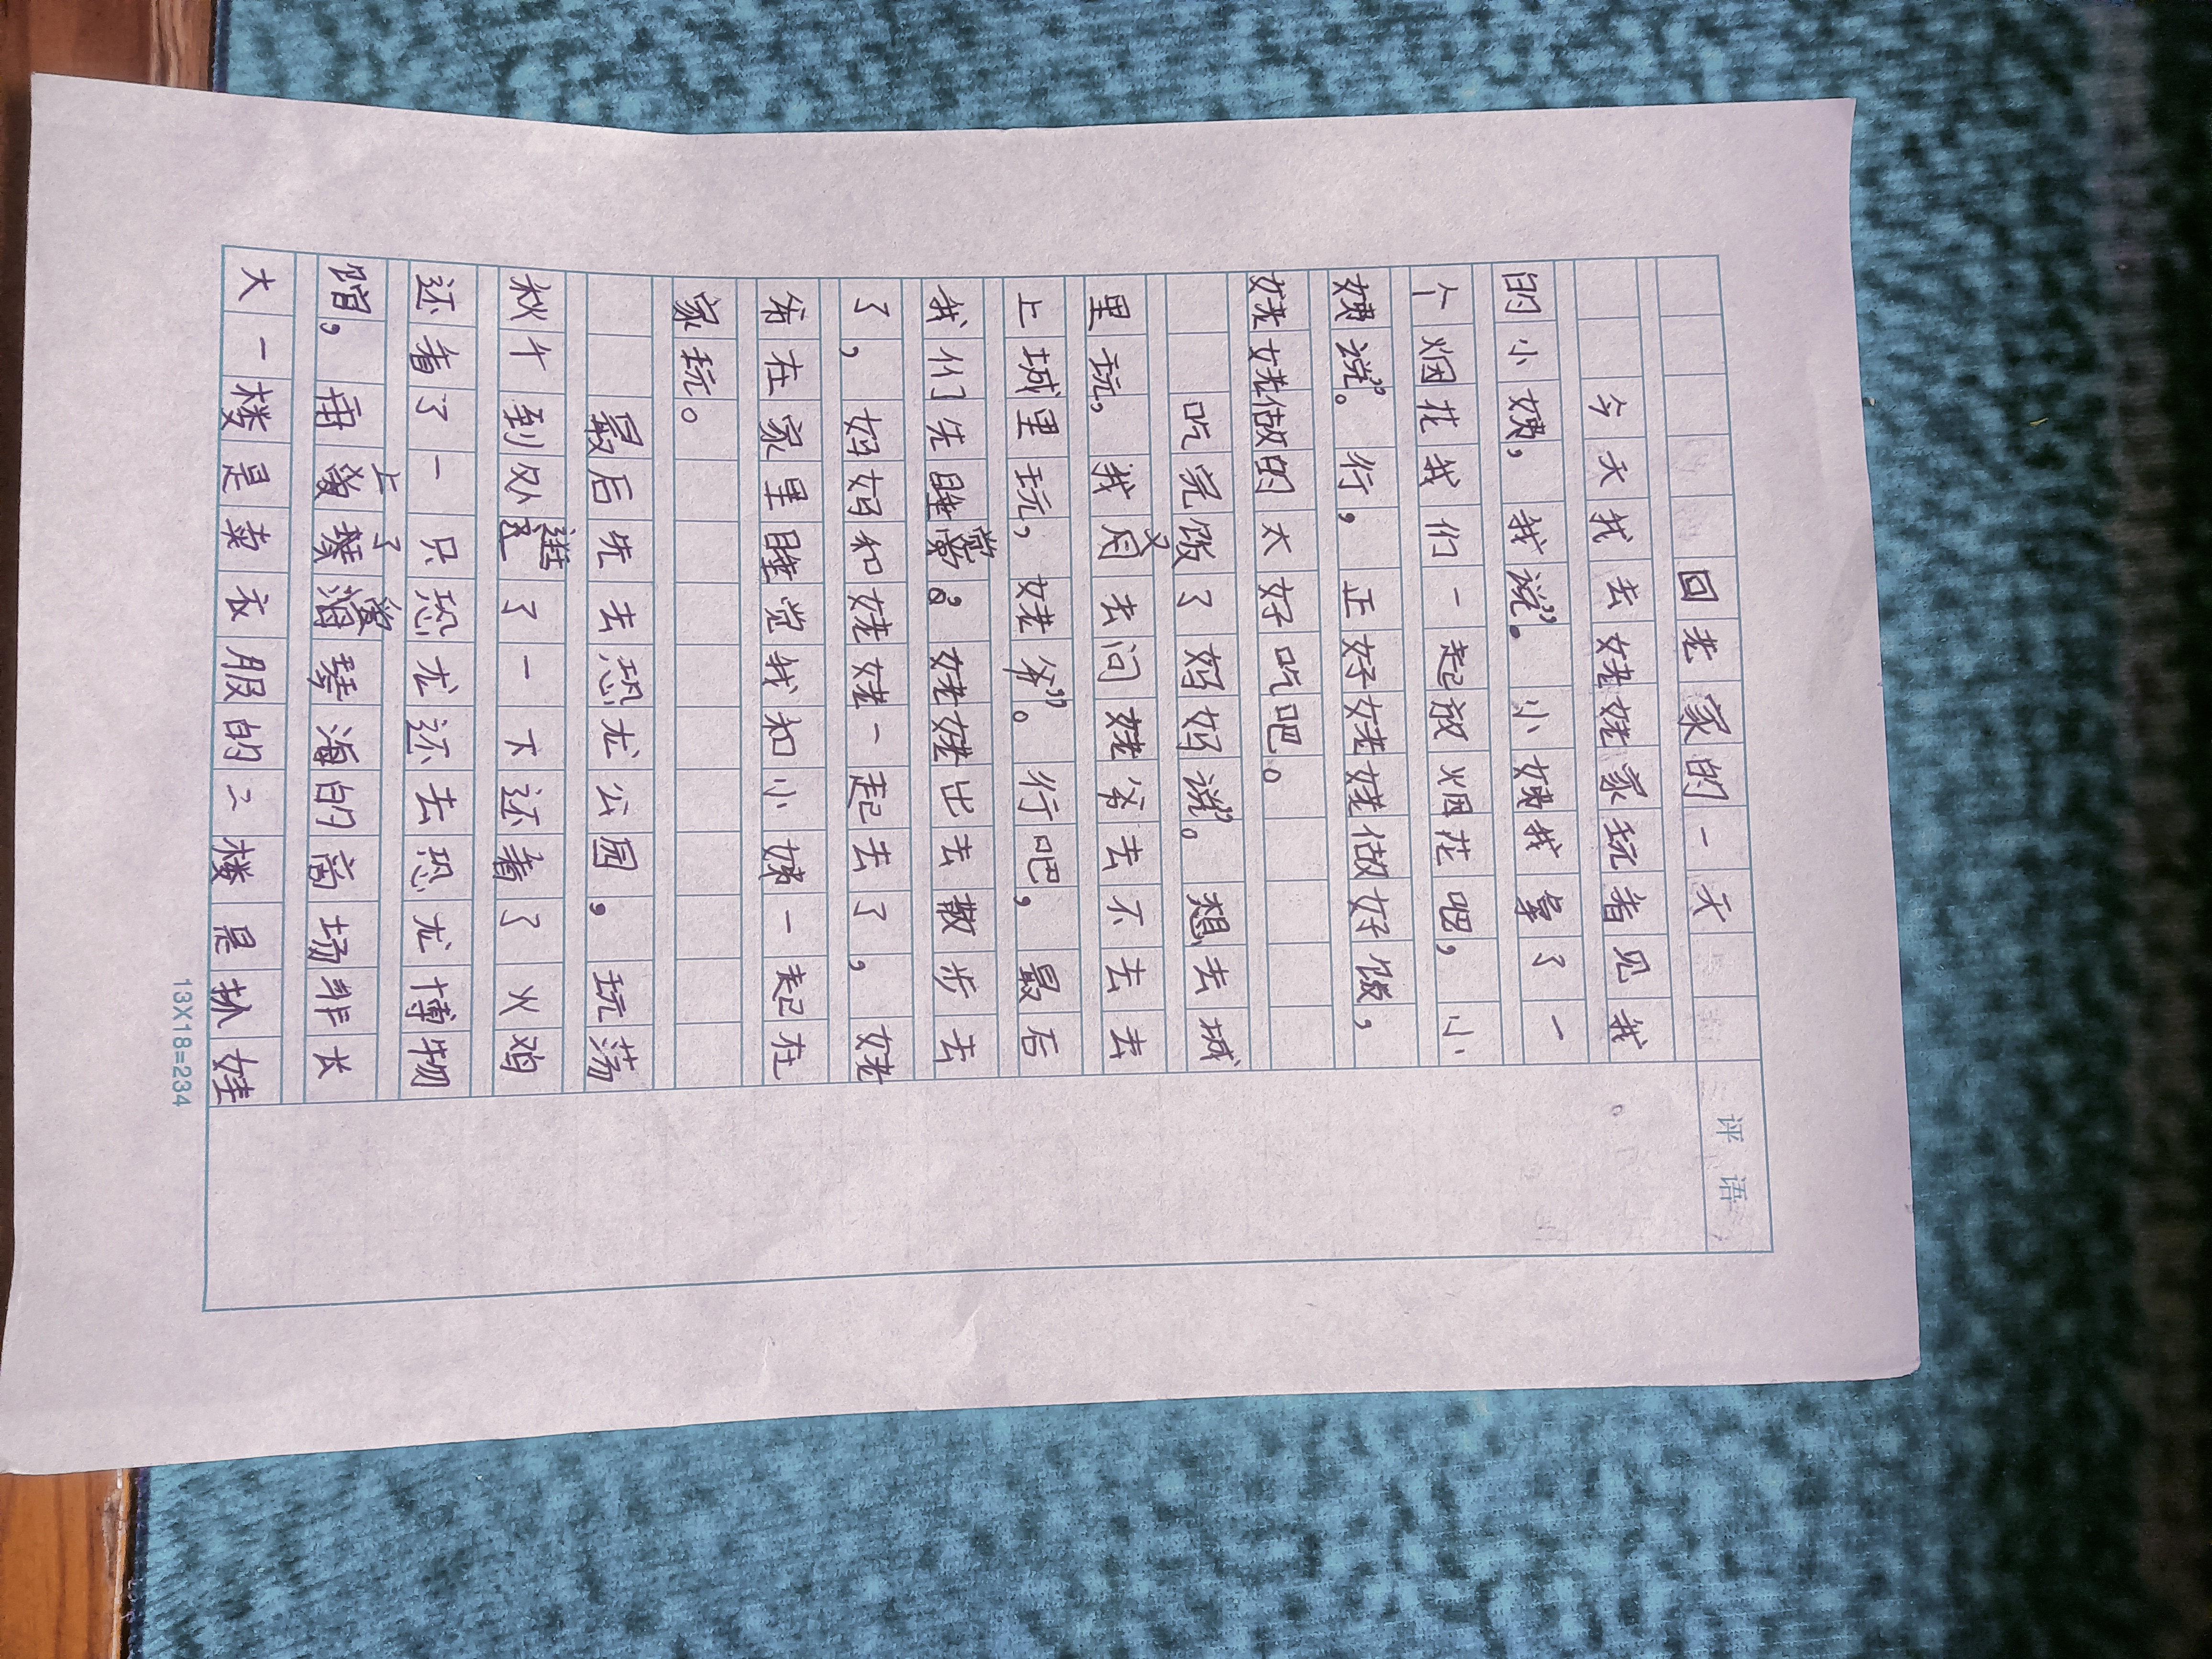 回老家的一天
今天我去姥姥家玩看见我
的小姨，我说”。小姨我拿了一
个烟花我们一起放烟花吧，小
姨说”。行，正好姥姥做好饭，
姥姥做的太好吃吧。
吃完饭了妈妈说”。想去城
里玩，我又去问姥爷去不去去
上城里玩，姥爷”。行吧，最后
我们先睡觉。姥姥出去散步去
了，妈妈和姥姥一起去了，姥
爷在家里睡觉我和小姨一起在
家玩。
最后先去恐龙公园，玩荡
秋千到处逛了一下还看了火鸡
还看了一只恐龙还去恐龙博物
馆，再上了琴海的商场非长
大一楼是卖衣服的二楼是抓娃
评语
13X18=234